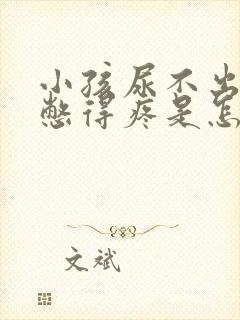 小孩尿不出
憋得疼是怎
文斌